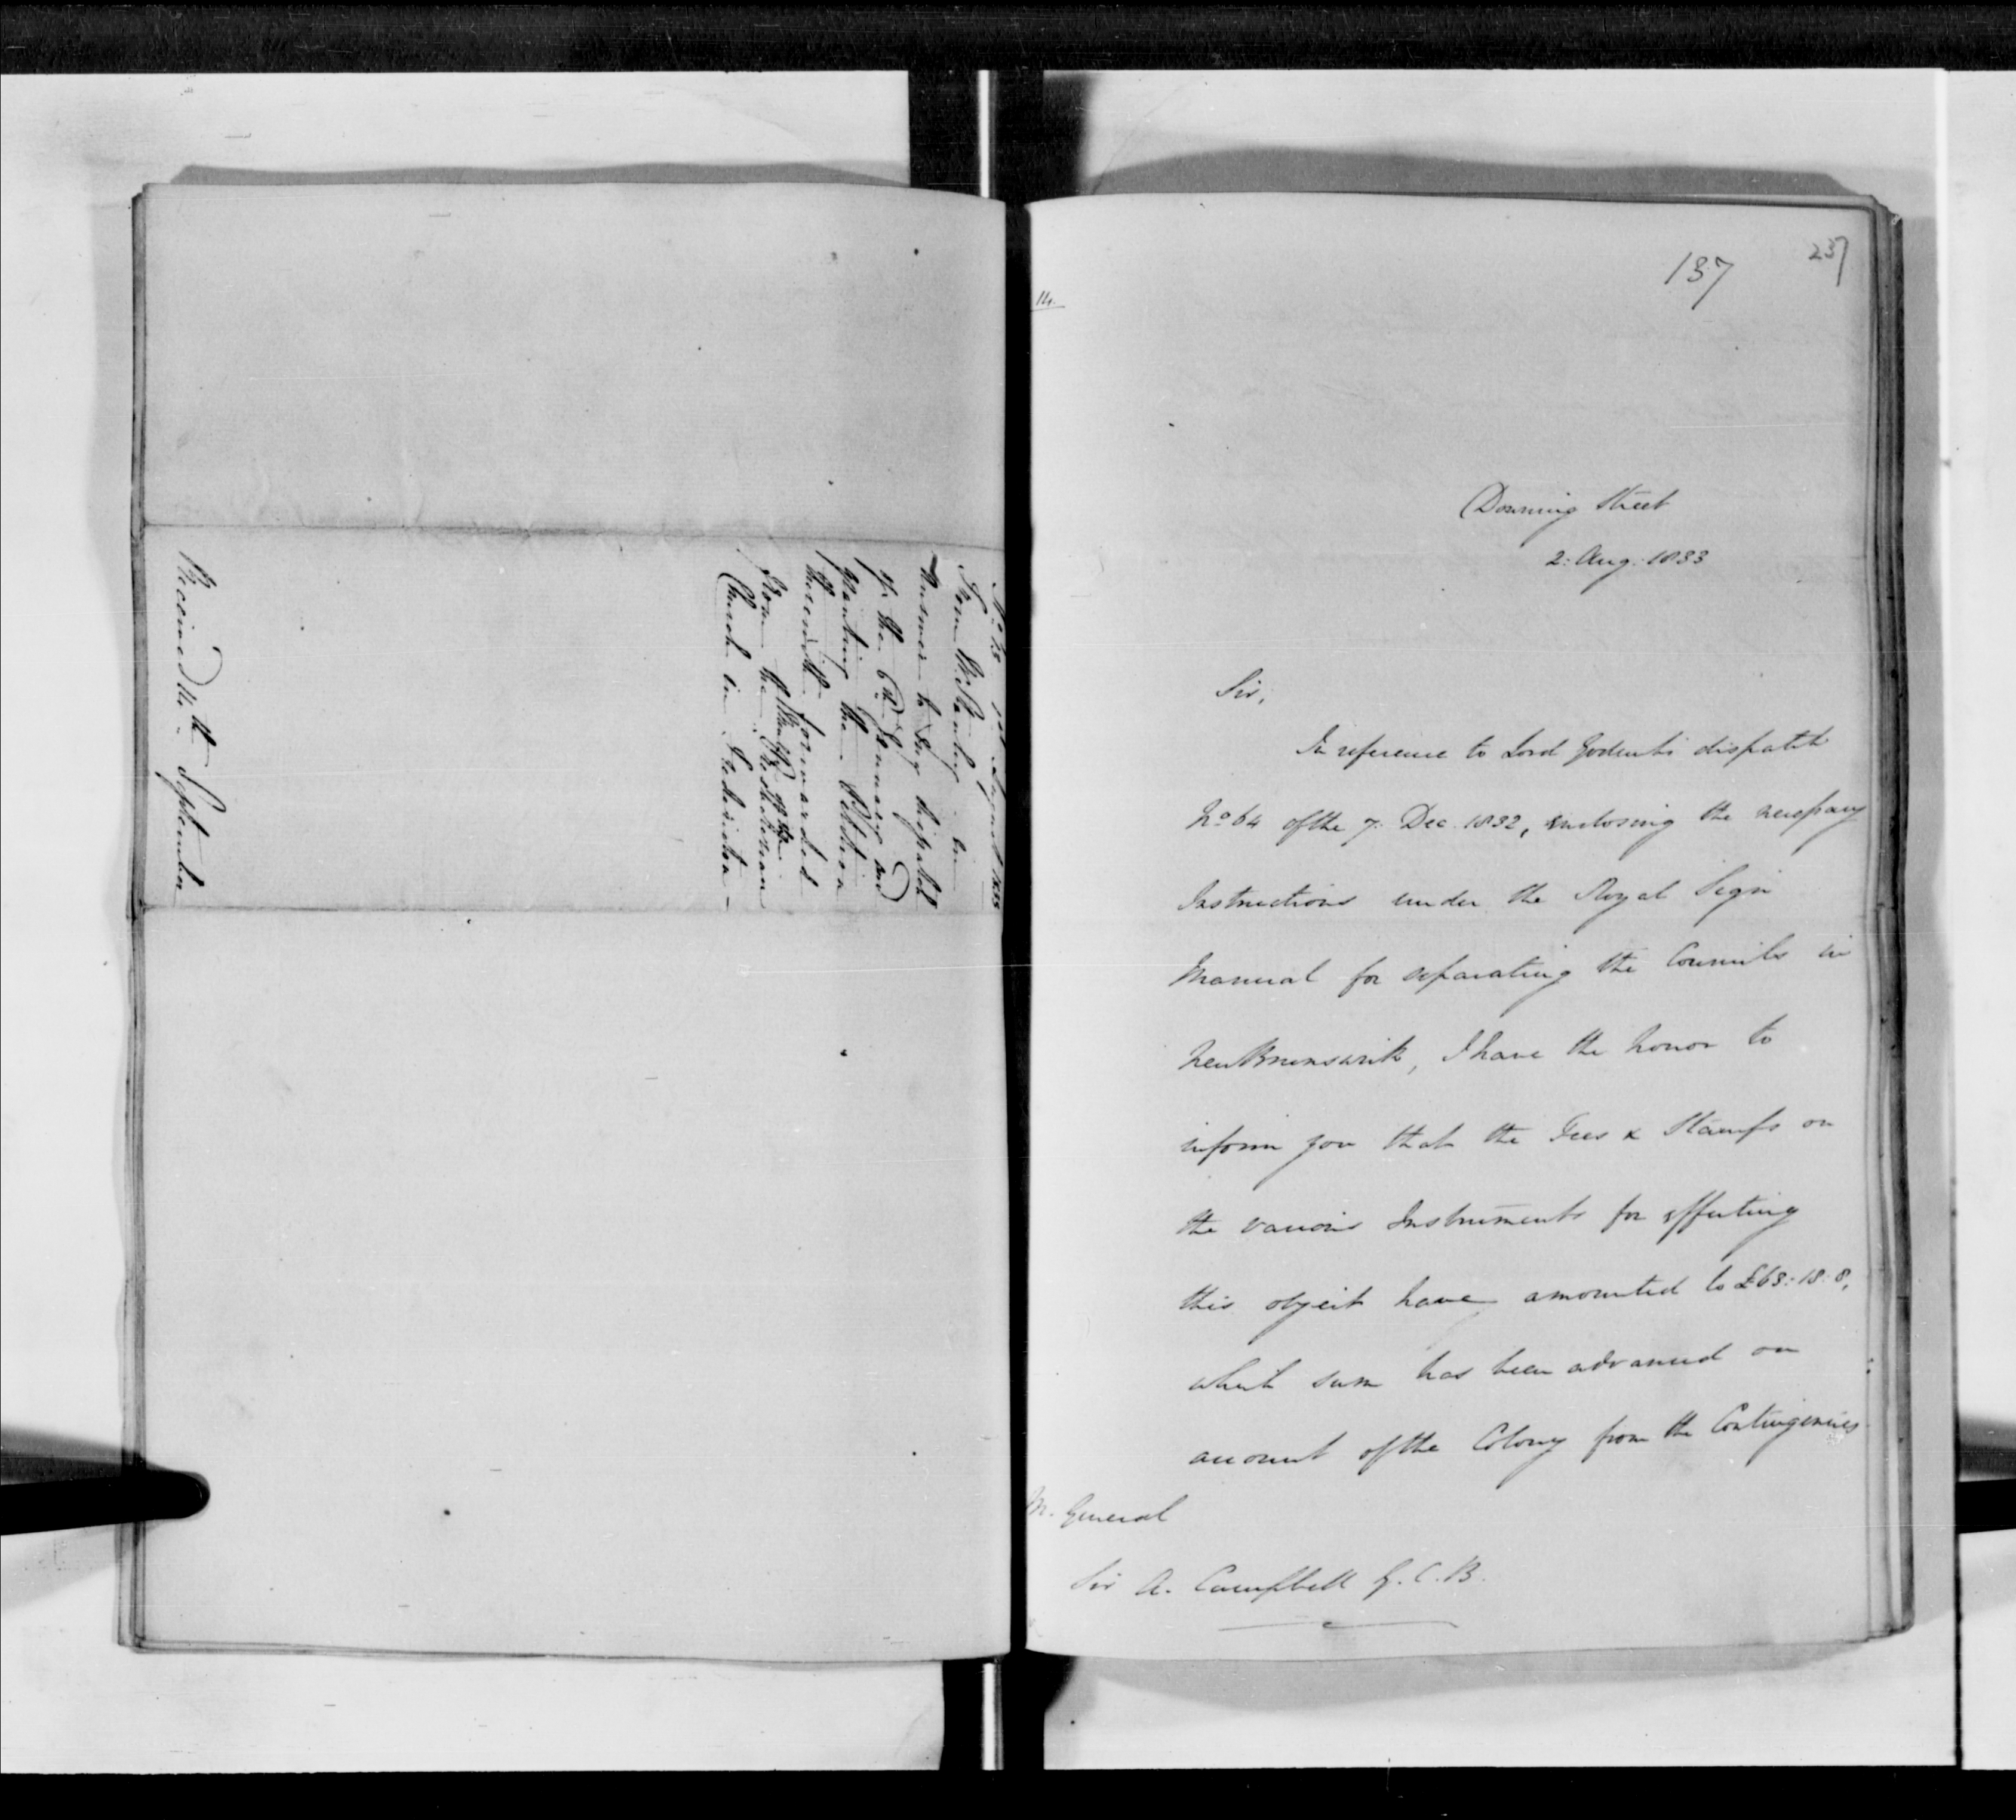 No. 13 1st August 1833
From Mr Stanley in
Answer to Sig dispatch
of the 6th January and
granting the Petition
therewith forwarded
from the Presbeterean
Church in Frederickton –
Received 14th September
237
137
14.
Downing Street
2. Aug. 1833
Sir,
In reference to Lord Goderich's dispatch
No 64 of the 7. Dec. 1832, enclosing the necessary
Instructions under the Royal Sign
Manual for separating the Councils in
New Brunswick, I have the honor to
inform you that the Fees & Stamps on
the various Instruments for effecting
this object have amounted to £63:18:8,
which sum has been advanced on
account of the Colony from the Contingencies
M. General
Sir A. Campbell G.C.B.